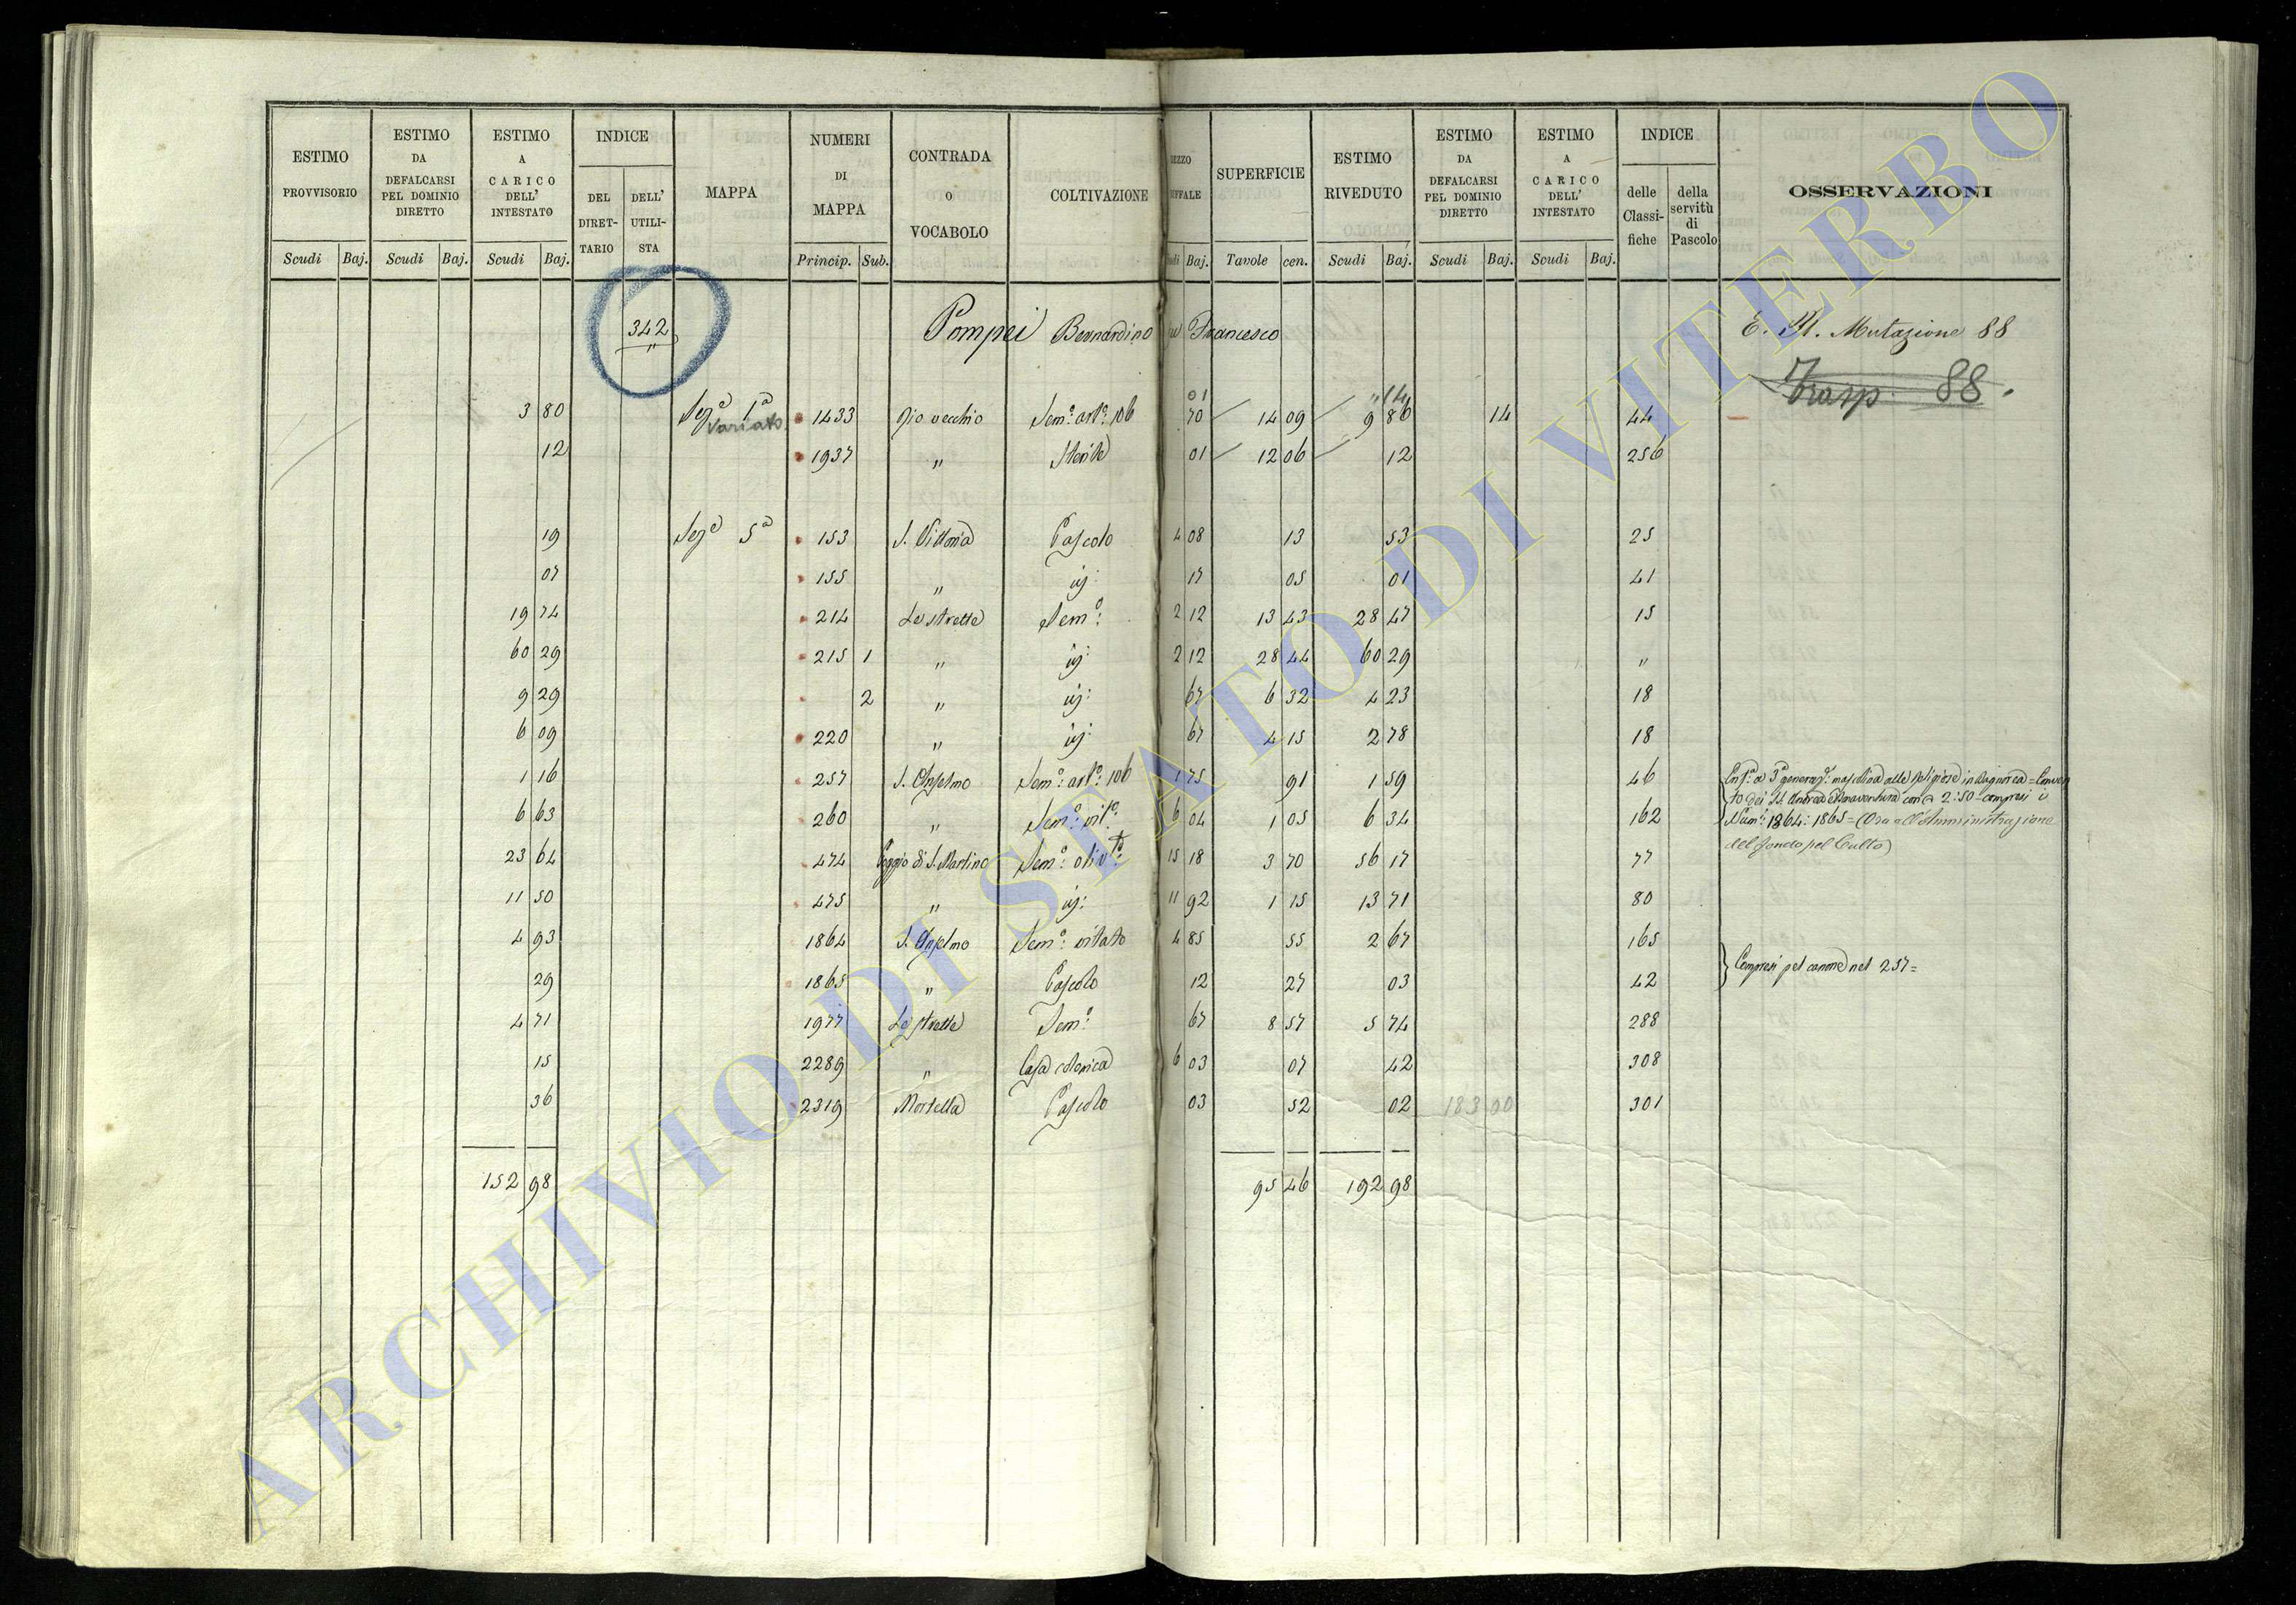 ESTIMO PROVVISORIO Scudi Baj. | ESTIMO DA DEFALCARSI PEL DOMINIO DIRETTO Scudi Baj. | ESTIMO A CARICO DELL' INTESTATO Scudi Baj. | INDICE DEL DIRET-TARIO DELL' UTILI-STA | MAPPA | NUMERI DI MAPPA Princip. Sub. | CONTRADA O VOCABOLO | COLTIVAZIONE | Baj. | SUPERFICIE Tavole cen. | ESTIMO RIVEDUTO Scudi Baj. | ESTIMO DA DEFALCARSI PEL DOMINIO DIRETTO Scudi Baj. | ESTIMO A CARICO DELL' INTESTATO Scudi Baj. | INDICE delle Classi-fiche della servitù di Pascolo | OSSERVAZIONI
342 Pompei Bernardino Francesco Mutazione 88
Trasp. 88.
01 " 14
3 80 Sez.e 1a 1433 Sem.o art.o 106 70 14 09 9 86 14 44
Variato
12 1937 " Sterile 01 12 06 12 256
19 Sez.e 5a 153 S. Vittoria Pascolo 4 08 13 53 25
07 155 " id: 17 05 01 41
19 74 214 Le strette Sem.o: 2 12 13 43 28 47 15
60 29 215 1 " id: 2 12 28 44 60 29 "
9 29 2 " id: 67 6 32 4 23 18
6 09 220 " id: 67 4 15 2 78 18
1 16 257 S. Anselmo Sem.o: art.o: 106 1 75 91 1 59 46 Enf.a a 3a generaz.e: mascolina alle Religiose in Bagnorea = Conven
to dei SS. Andrea e Bonaventura con 2:50 compresi i
6 63 260 " Sem.o: vit.o 6 04 1 05 6 34 162 Num.i: 1864: 1865 = (Ora all'Amministrazione
del fondo pel Culto)
23 64 474 Poggio di S. Martino Sem.o: oliv.to 15 18 3 70 56 17 77
11 50 475 " id: 11 92 1 15 13 71 80
4 93 1864 S. Anselmo Sem.o: vitato 4 85 55 2 67 165
Compresi pel canone nel 257 =
29 1865 " Pascolo 12 27 03 42
4 71 1977 Le strette Sem.o 67 8 57 5 74 288
15 2289 " Casa colonica 6 03 07 42 308
36 2319 Mortella Pascolo 03 52 02 183 00 301
152 98 95 46 192 98
ARCHIVIO DI STATO DI VITERBO